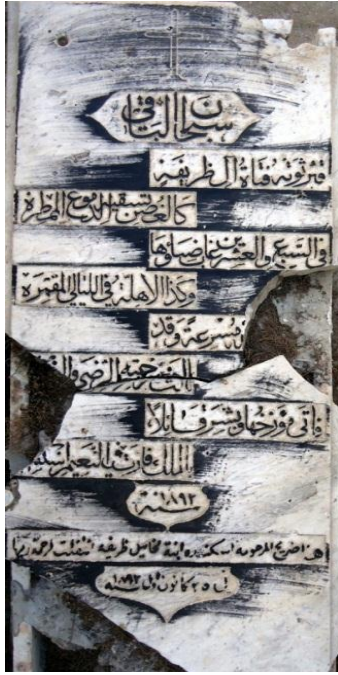 سبحان الباقي
قبر ثوته فتاة آل ظريفه
كالغصن تسقيه الدموع الممطره
في السبع والعشرين غاب ضياؤها
وكذا الاهلة في الليالي المقمره
بسرعة وقد
فاتى مؤرخها وبشر قائلا
بالملك فازت بالنعيم
سنة ١٨٩٢
هذا ضريح المرحومه اسكندره ابنة مخايل ظريفه انتقلت لرحمة ربها
في ٢٥ كانون اول سنة ١٨٩٢